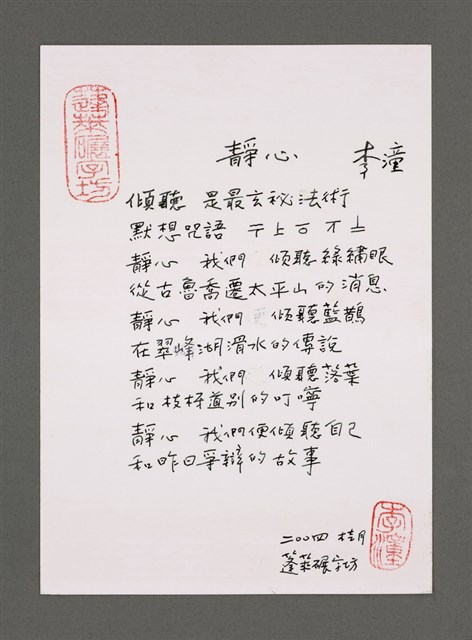 蓬萊碾字坊
靜心 李潼
傾聽 是最玄祕法術
默想咒語 ㄒㄥㄜㄒㄥ
靜心 我們 傾聽綠繡眼
從古魯喬遷太平山的消息
靜心 我們 傾聽藍鵲
在翠峰湖滑水的傳說
靜心 我們 傾聽落葉
和枝枒道別的叮嚀
靜心 我們便傾聽自己
和昨日爭辯的故事
二〇〇四 桂月
蓬萊碾字坊
李潼